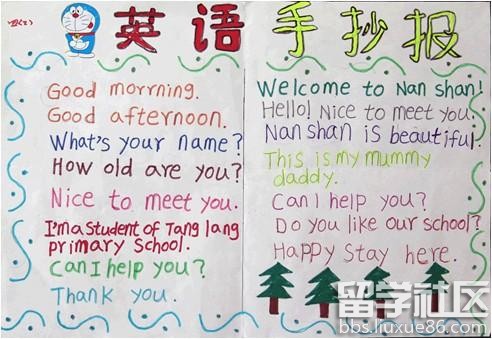 英语手抄报
Good morrning.
Good afternoon.
What's your name?
How old are you?
Nice to meet you.
I'm a student of Tang lang
primary School.
Can I help you?
Thank you.
Welcome to Nan shan!
Hello! Nice to meet you.
Nan shan is beautiful.
This is my mummy
daddy.
Can I help you?
Do you like our school?
Happy Stay here.
留学社区
bbs.liuxue86.com